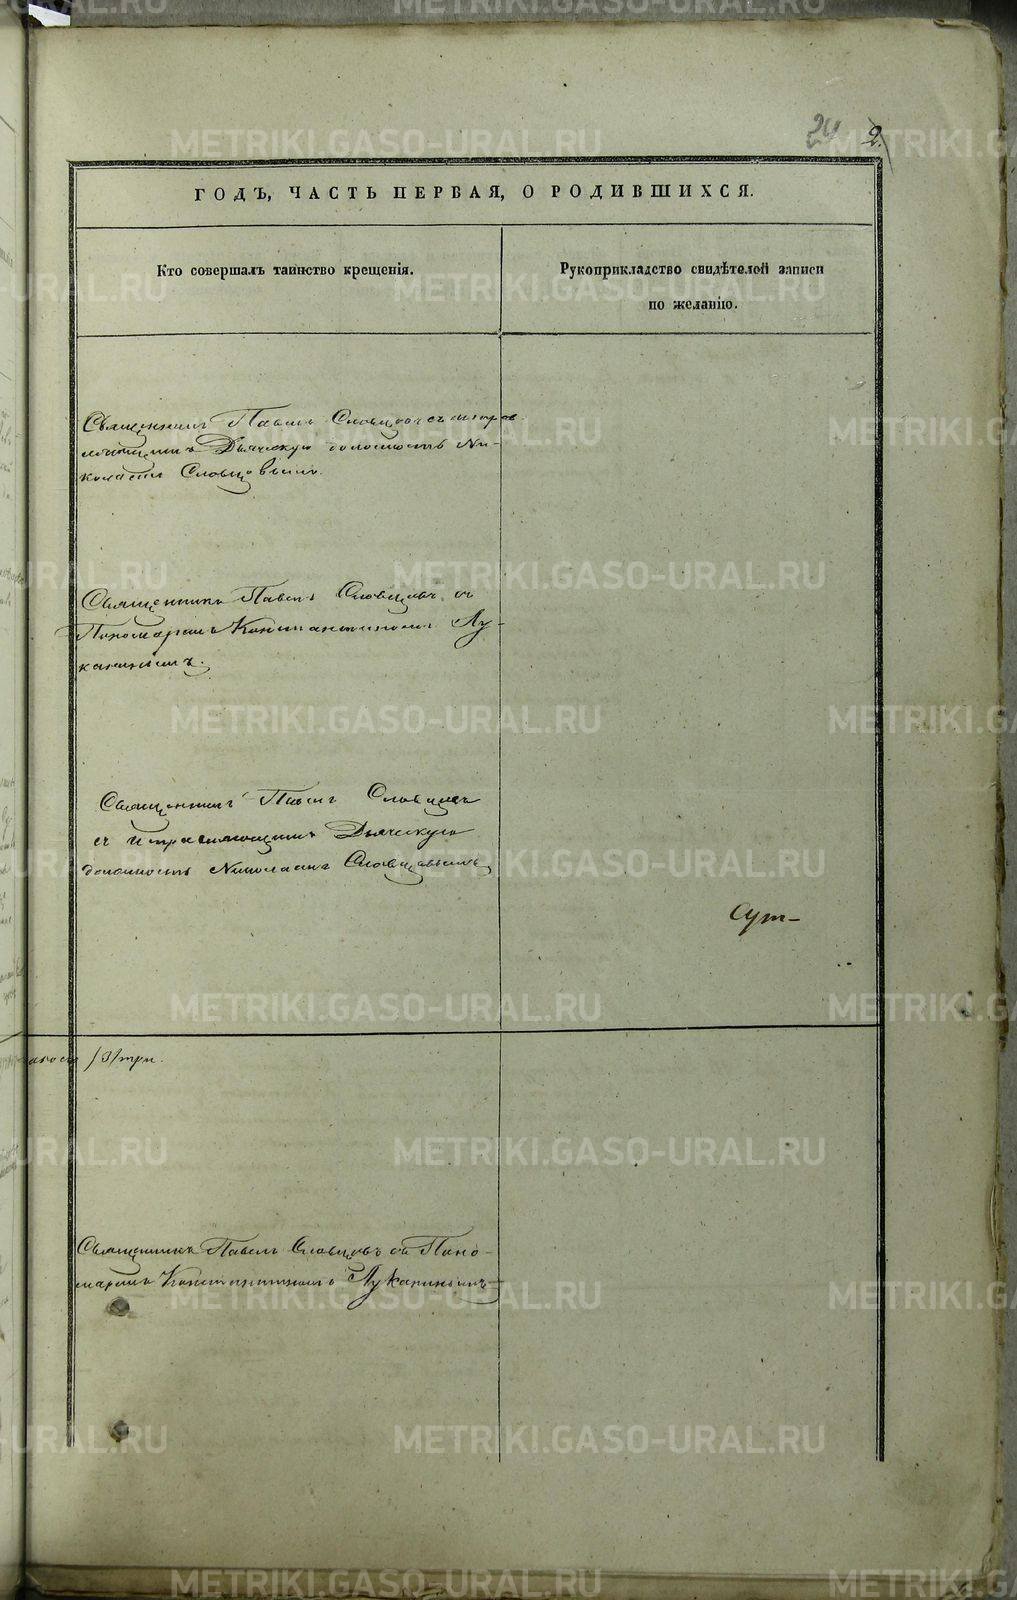 24 2.
ГОДЪ, ЧАСТЬ ПЕРВАЯ, О РОДИВШИХСЯ.
Кто совершалъ таинство крещенія.
Рукоприкладство свидѣтелей записи
по желанію.
Священникъ Павелъ Словцовъ съ исправ
ляющимъ Дьяческую должность Ни-
колаемъ Словцовымъ.
Священникъ Павелъ Словцовъ съ
Пономаремъ Константиномъ Лу-
канинымъ.
Священникъ Павелъ Словцовъ
съ Исправляющимъ Дьяческую
должность Николаемъ Словцовымъ
Сут-
/3/ три.
Священникъ Павелъ Словцовъ съ Поно-
маремъ Константиномъ Луканинымъ
METRIKI.GASO-URAL.RU